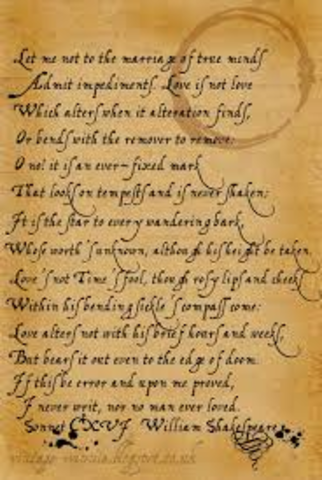 Let me not to the marriage of true minds
Admit impediments. Love is not love
Which alters when it alteration finds,
Or bends with the remover to remove:
O no! it is an ever-fixed mark
That looks on tempests and is never shaken;
It is the star to every wandering bark,
Whose worth's unknown, although his height be taken.
Love's not Time's fool, though rosy lips and cheeks
Within his bending sickle's compass come:
Love alters not with his brief hours and weeks,
But bears it out even to the edge of doom.
If this be error and upon me proved,
I never writ, nor no man ever loved.
Sonnet CXVI William Shakespeare
.blogspot.co.uk